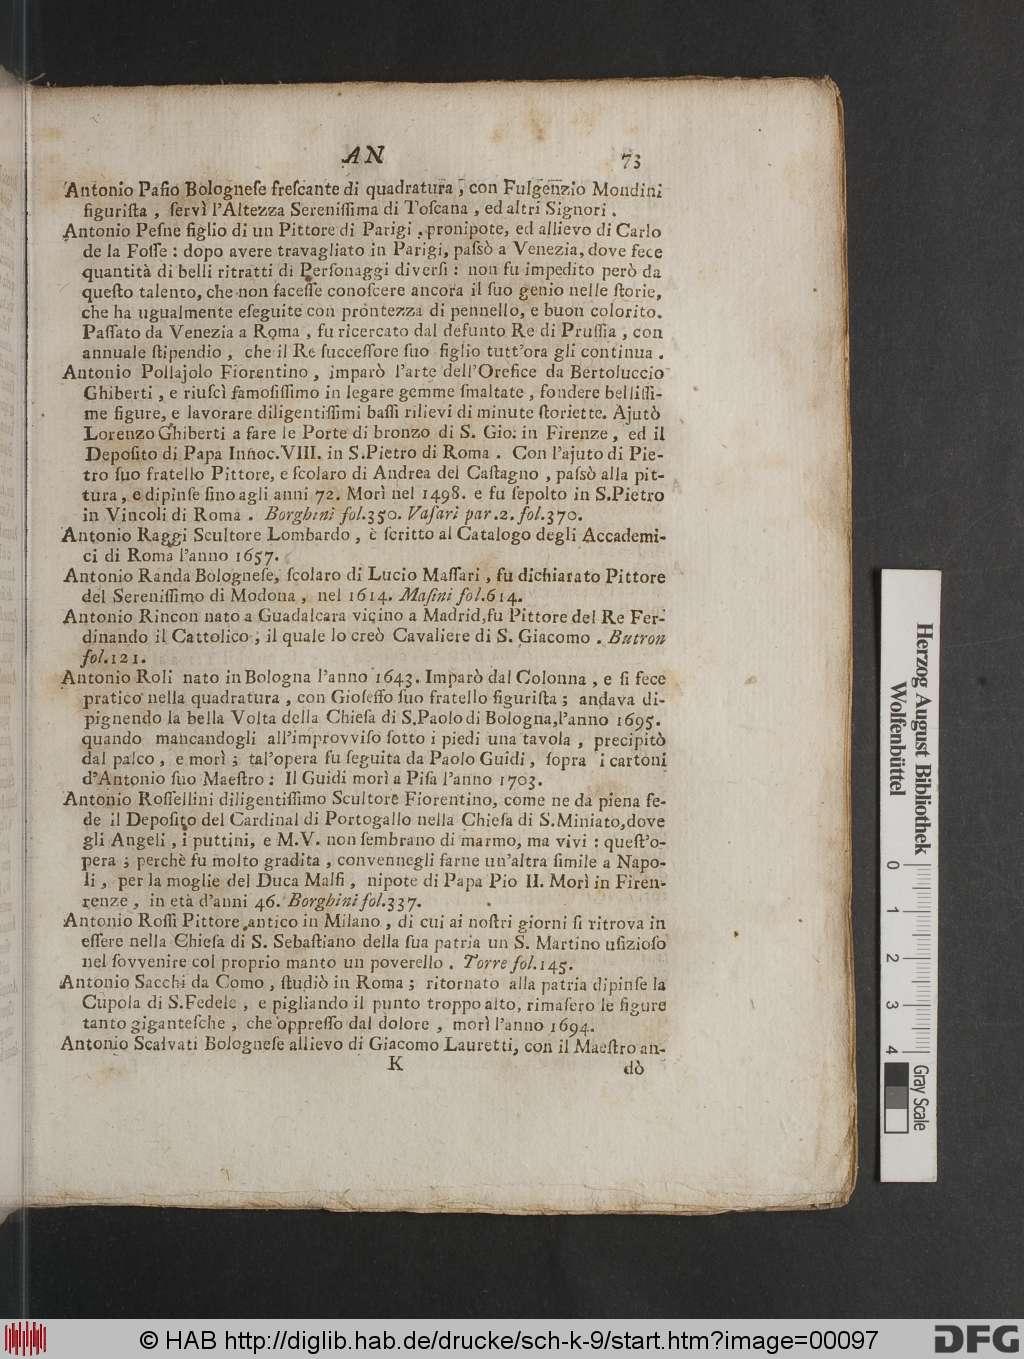 AN 73
Antonio Paſio Bologneſe freſcante di quadratura, con Fulgenzio Mondini
figuriſta, ſervì l'Altezza Sereniſſima di Toſcana, ed altri Signori.
Antonio Peſne figlio di un Pittore di Parigi, pronipote, ed allievo di Carlo
de la Foſſe: dopo avere travagliato in Parigi, paſsò a Venezia, dove fece
quantità di belli ritratti di Perſonaggi diverſi: non fu impedito però da
queſto talento, che non faceſſe conoſcere ancora il ſuo genio nelle ſtorie,
che ha ugualmente eſeguite con prontezza di pennello, e buon colorito.
Paſſato da Venezia a Roma, fu ricercato dal defunto Re di Pruſſia, con
annuale ſtipendio, che il Re ſucceſſore ſuo figlio tutt'ora gli continua.
Antonio Pollajolo Fiorentino, imparò l'arte dell'Orefice da Bertoluccio
Ghiberti, e riuſcì famoſiſſimo in legare gemme ſmaltate, fondere belliſſi-
me figure, e lavorare diligentiſſimi baſſi rilievi di minute ſtoriette. Ajutò
Lorenzo Ghiberti a fare le Porte di bronzo di S. Gio: in Firenze, ed il
Depoſito di Papa Innoc. VIII. in S. Pietro di Roma. Con l'ajuto di Pie-
tro ſuo fratello Pittore, e ſcolaro di Andrea del Caſtagno, paſsò alla pit-
tura, e dipinſe ſino agli anni 72. Morì nel 1498. e fu ſepolto in S. Pietro
in Vincoli di Roma. Borghini fol. 350. Vaſari par. 2. fol. 370.
Antonio Raggi Scultore Lombardo, è ſcritto al Catalogo degli Accademi-
ci di Roma l'anno 1657.
Antonio Randa Bologneſe, ſcolaro di Lucio Maſſari, fu dichiarato Pittore
del Sereniſſimo di Modona, nel 1614. Maſini fol. 614.
Antonio Rincon nato a Guadalcara vicino a Madrid, fu Pittore del Re Fer-
dinando il Cattolico, il quale lo creò Cavaliere di S. Giacomo. Butron
fol. 121.
Antonio Roli nato in Bologna l'anno 1643. Imparò dal Colonna, e ſi fece
pratico nella quadratura, con Gioſeffo ſuo fratello figuriſta; andava di-
pignendo la bella Volta della Chieſa di S. Paolo di Bologna, l'anno 1695.
quando mancandogli all'improvviſo ſotto i piedi una tavola, precipitò
dal palco, e morì; tal'opera fu ſeguita da Paolo Guidi, ſopra i cartoni
d'Antonio ſuo Maeſtro: Il Guidi morì a Piſa l'anno 1703.
Antonio Roſſellini diligentiſſimo Scultore Fiorentino, come ne da piena fe-
de il Depoſito del Cardinal di Portogallo nella Chieſa di S. Miniato, dove
gli Angeli, i puttini, e M.V. non ſembrano di marmo, ma vivi: queſt'o-
pera; perchè fu molto gradita, convennegli farne un'altra ſimile a Napo-
li, per la moglie del Duca Malfi, nipote di Papa Pio II. Morì in Firen-
renze, in età d'anni 46. Borghini fol. 337.
Antonio Roſſi Pittore antico in Milano, di cui ai noſtri giorni ſi ritrova in
eſſere nella Chieſa di S. Sebaſtiano della ſua patria un S. Martino uſizioſo
nel ſovvenire col proprio manto un poverello. Torre fol. 145.
Antonio Sacchi da Como, ſtudiò in Roma; ritornato alla patria dipinſe la
Cupola di S. Fedele, e pigliando il punto troppo alto, rimaſero le figure
tanto giganteſche, che oppreſſo dal dolore, morì l'anno 1694.
Antonio Scalvati Bologneſe allievo di Giacomo Lauretti, con il Maeſtro an-
K dò
Herzog August Bibliothek
Wolfenbüttel
0 1 2 3 4
Gray Scale
© HAB http://diglib.hab.de/drucke/sch-k-9/start.htm?image=00097
DFG